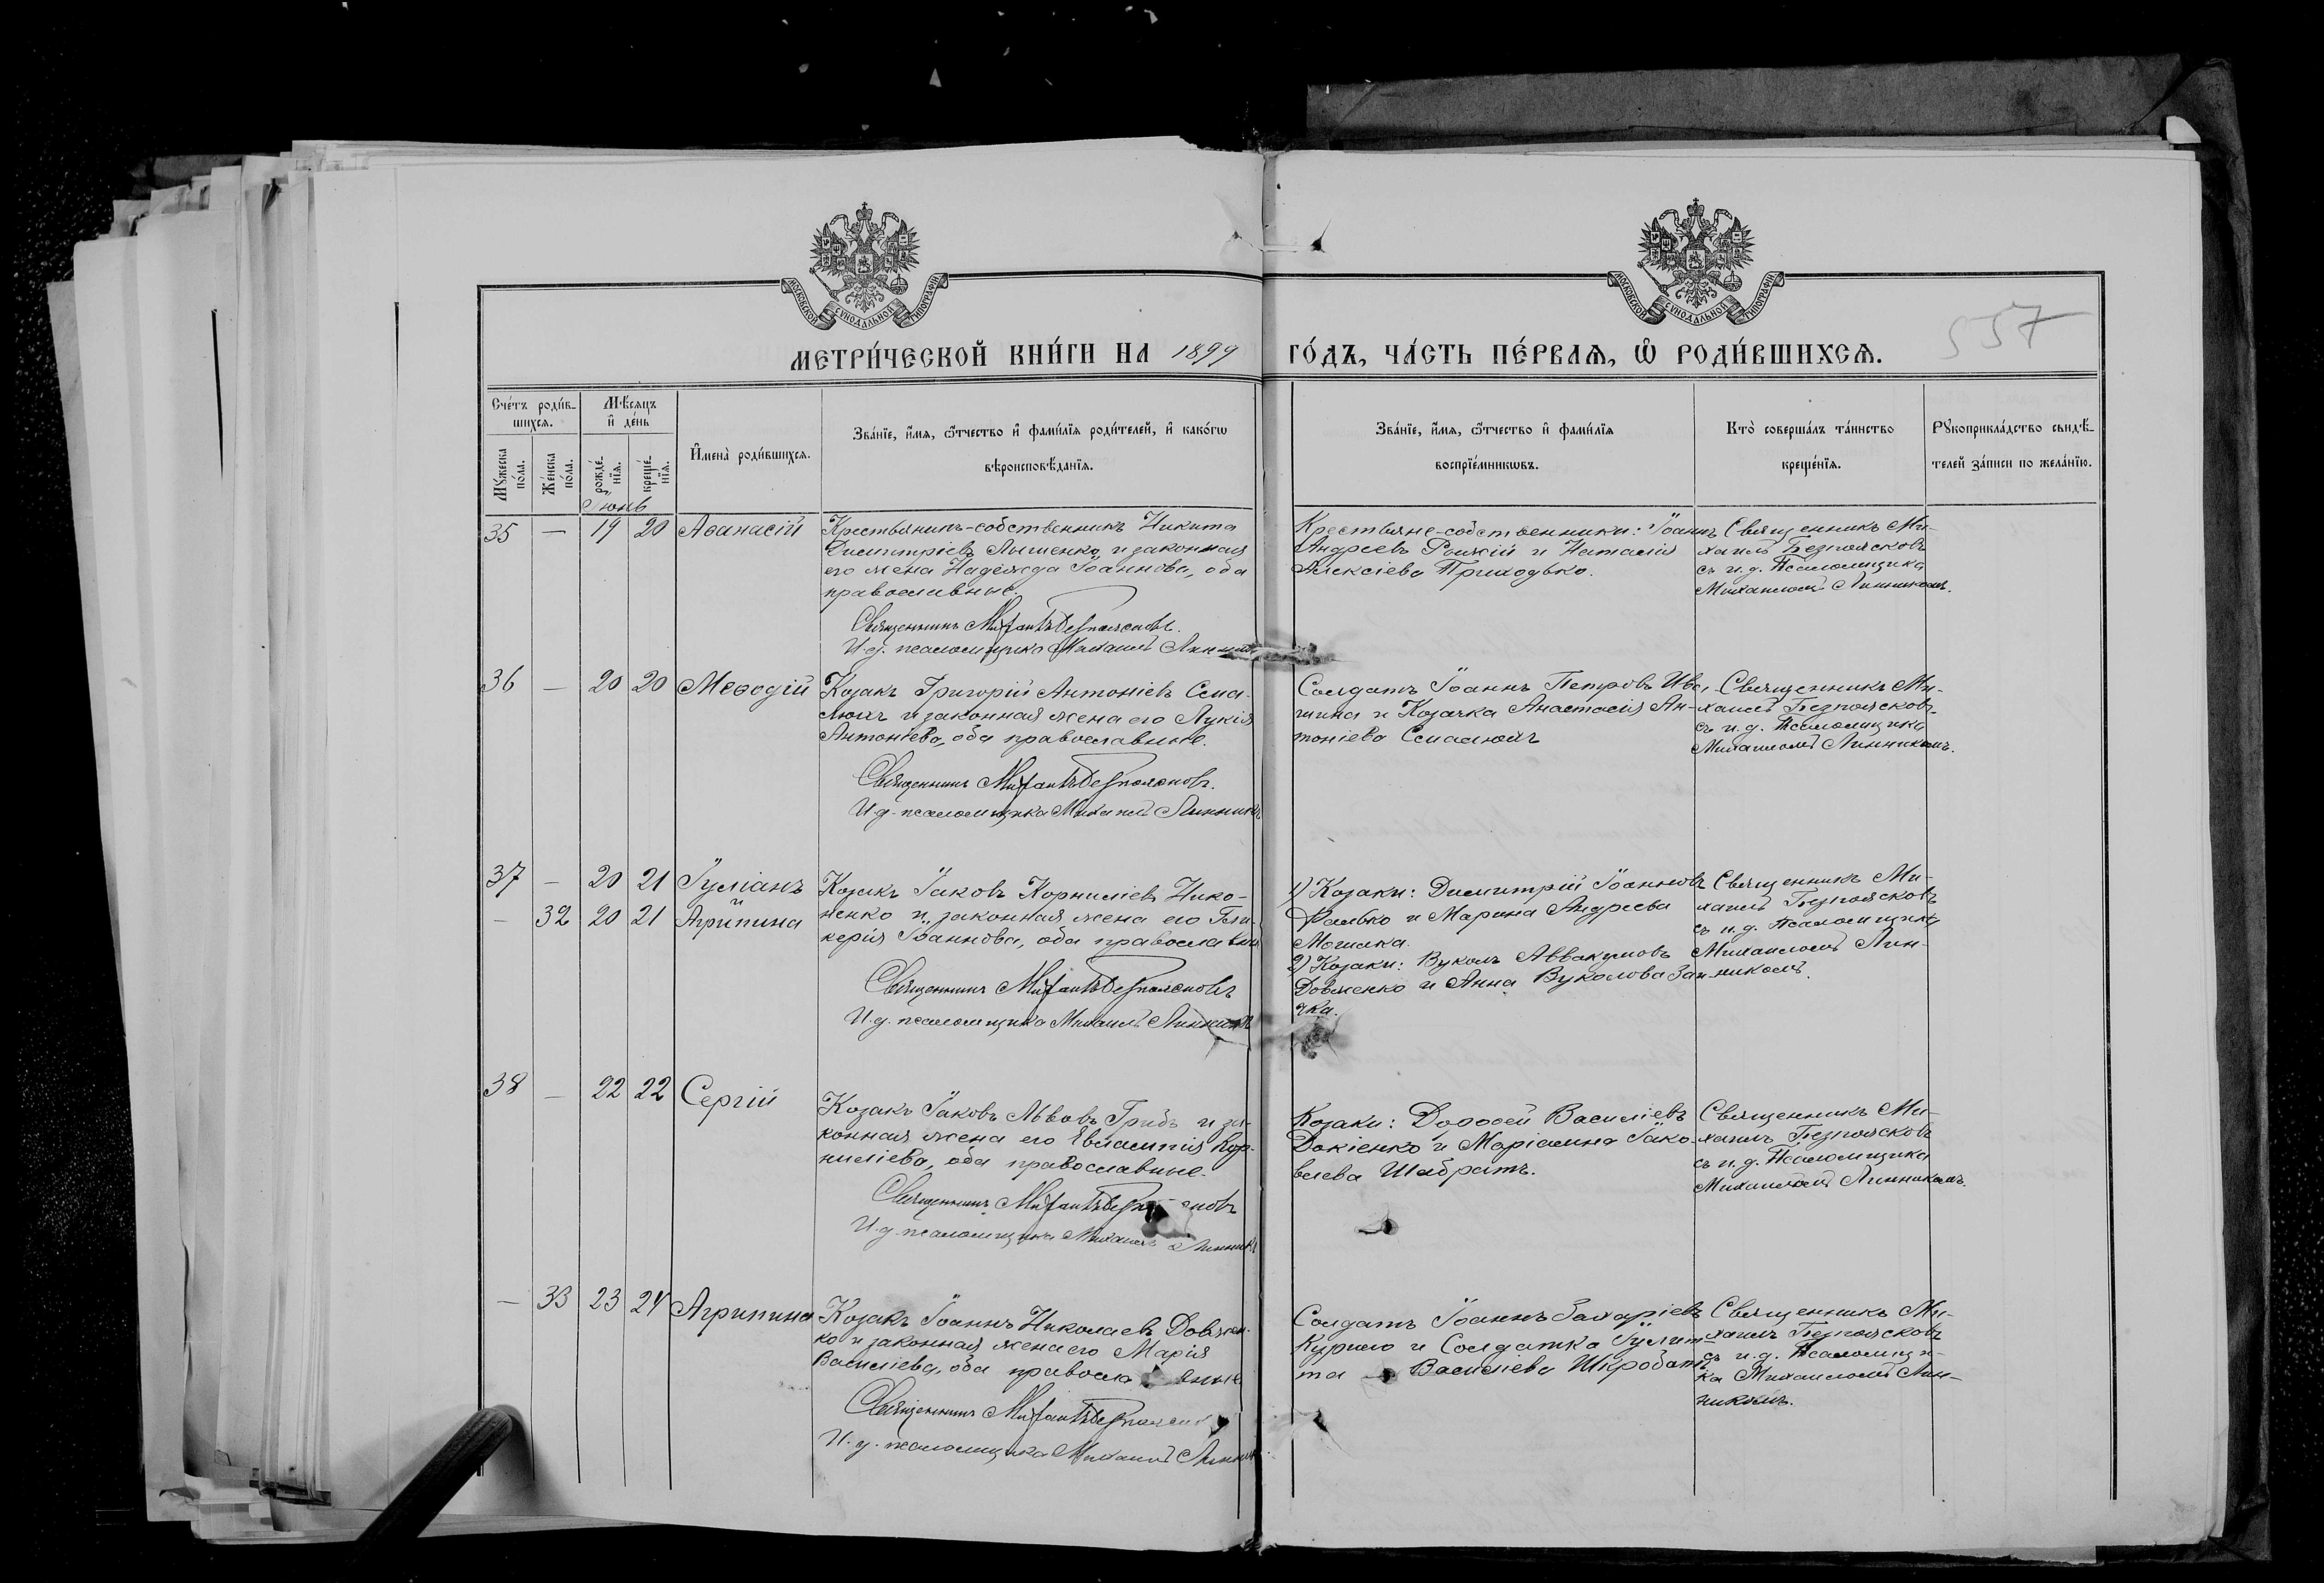 МОСКОВСКОЙ СУНОДАЛЬНОЙ ТИПОГРАФІИ
МОСКОВСКОЙ СУНОДАЛЬНОЙ ТИПОГРАФІИ
557
МЕТРИ́ЧЕСКОЙ КНИ́ГИ НА 1899 ГО́ДЪ, ЧА́СТЬ ПЕ́РВАѦ, Ѡ҆ РОДИ́ВШИХСѦ.
Сче́тъ роди́в-
шихсѧ.
Мѣ́сяцъ
и҆ де́нь
Мꙋ́жеска
по́ла.
Же́нска
по́ла.
рожде́-
нїѧ.
креще́-
нїѧ.
И҆мена̀ роди́вшихсѧ.
Зва́нїе, и҆́мѧ, ѻ҆́тчество и҆ фами́лїѧ роди́телей, и҆ како́гѡ
вѣроисповѣ́данїѧ.
Зва́нїе, и҆́мѧ, ѻ҆́тчество и҆ фами́лїѧ
воспрїе́мникѡвъ.
Кто̀ соверша́лъ та́инство
креще́нїѧ.
Рꙋкоприкла́дство свидѣ́-
телей за́писи по жела́нїю.
Іюнь
35 — 19 20 Аѳанасій
Крестьянинъ-собственникъ Никита
Димитріевъ Лышенко и законная
его жена Надежда Іоаннова, оба
православные.
Священникъ Михаилъ Безпоясковъ.
И.д. псаломщика Михаилъ Линникъ
Крестьяне-собственники: Іоаннъ
Андреевъ Рыжій и Наталія
Алексіева Приходько.
Священникъ Ми-
хаилъ Безпоясковъ
съ и.д. Псаломщика
Михаиломъ Линникомъ.
36 — 20 20 Меѳодій
Козакъ Григорій Антоніевъ Сма-
люхъ и законная жена его Лукія
Антоніева, оба православные.
Священникъ Михаилъ Безпоясковъ.
И.д. псаломщика Михаилъ Линникъ
Солдатъ Іоаннъ Петровъ Ива-
шина и Козачка Анастасія Ан-
тоніева Смалюхъ
Священникъ Ми-
хаилъ Безпоясковъ
съ и.д. Псаломщика
Михаиломъ Линникомъ.
37 — 20 21 Іуліанъ
и
— 32 20 21 Агрипина
Козакъ Іаковъ Корниліевъ Нико-
ненко и законная жена его Гли-
керія Іоаннова, оба православн
Священникъ Михаилъ Безпоясковъ
И.д. псаломщика Михаилъ Линникъ
1) Козаки: Димитрій Іоанновъ
Фалько и Марина Андреева
Могилка.
2) Козаки: Вуколъ Аввакумовъ
Довженко и Анна Вуколова Заи-
чка.
Священникъ Ми-
хаилъ Безпоясковъ
съ и.д. Псаломщика
Михаиломъ Лин-
никомъ.
38 — 22 22 Сергій
Козакъ Іаковъ Львовъ Грибъ и за-
конная жена его Евлампія Кор-
ниліева, оба православные.
Священникъ Михаилъ Безпоясковъ
И.д. псаломщика Михаилъ Линникъ
Козаки: Дороѳей Василіевъ
Докіенко и Маріамна Іако-
влева Шабратъ.
Священникъ Ми-
хаилъ Безпоясковъ
съ и.д. Псаломщика
Михаиломъ Линникомъ.
— 33 23 24 Агрипина
Козакъ Іоаннъ Николаевъ Довжен-
ко и законная жена его Марія
Василіева, оба православные
Священникъ Михаилъ Безпоясков
И.д. псаломщика Михаилъ Линник
Солдатъ Іоаннъ Захаріевъ
Курило и Солдатка Іулит-
та Василіева Шкробатъ
Священникъ Ми-
хаилъ Безпоясковъ
съ и.д. Псаломщи-
ка Михаиломъ Лин-
никомъ.